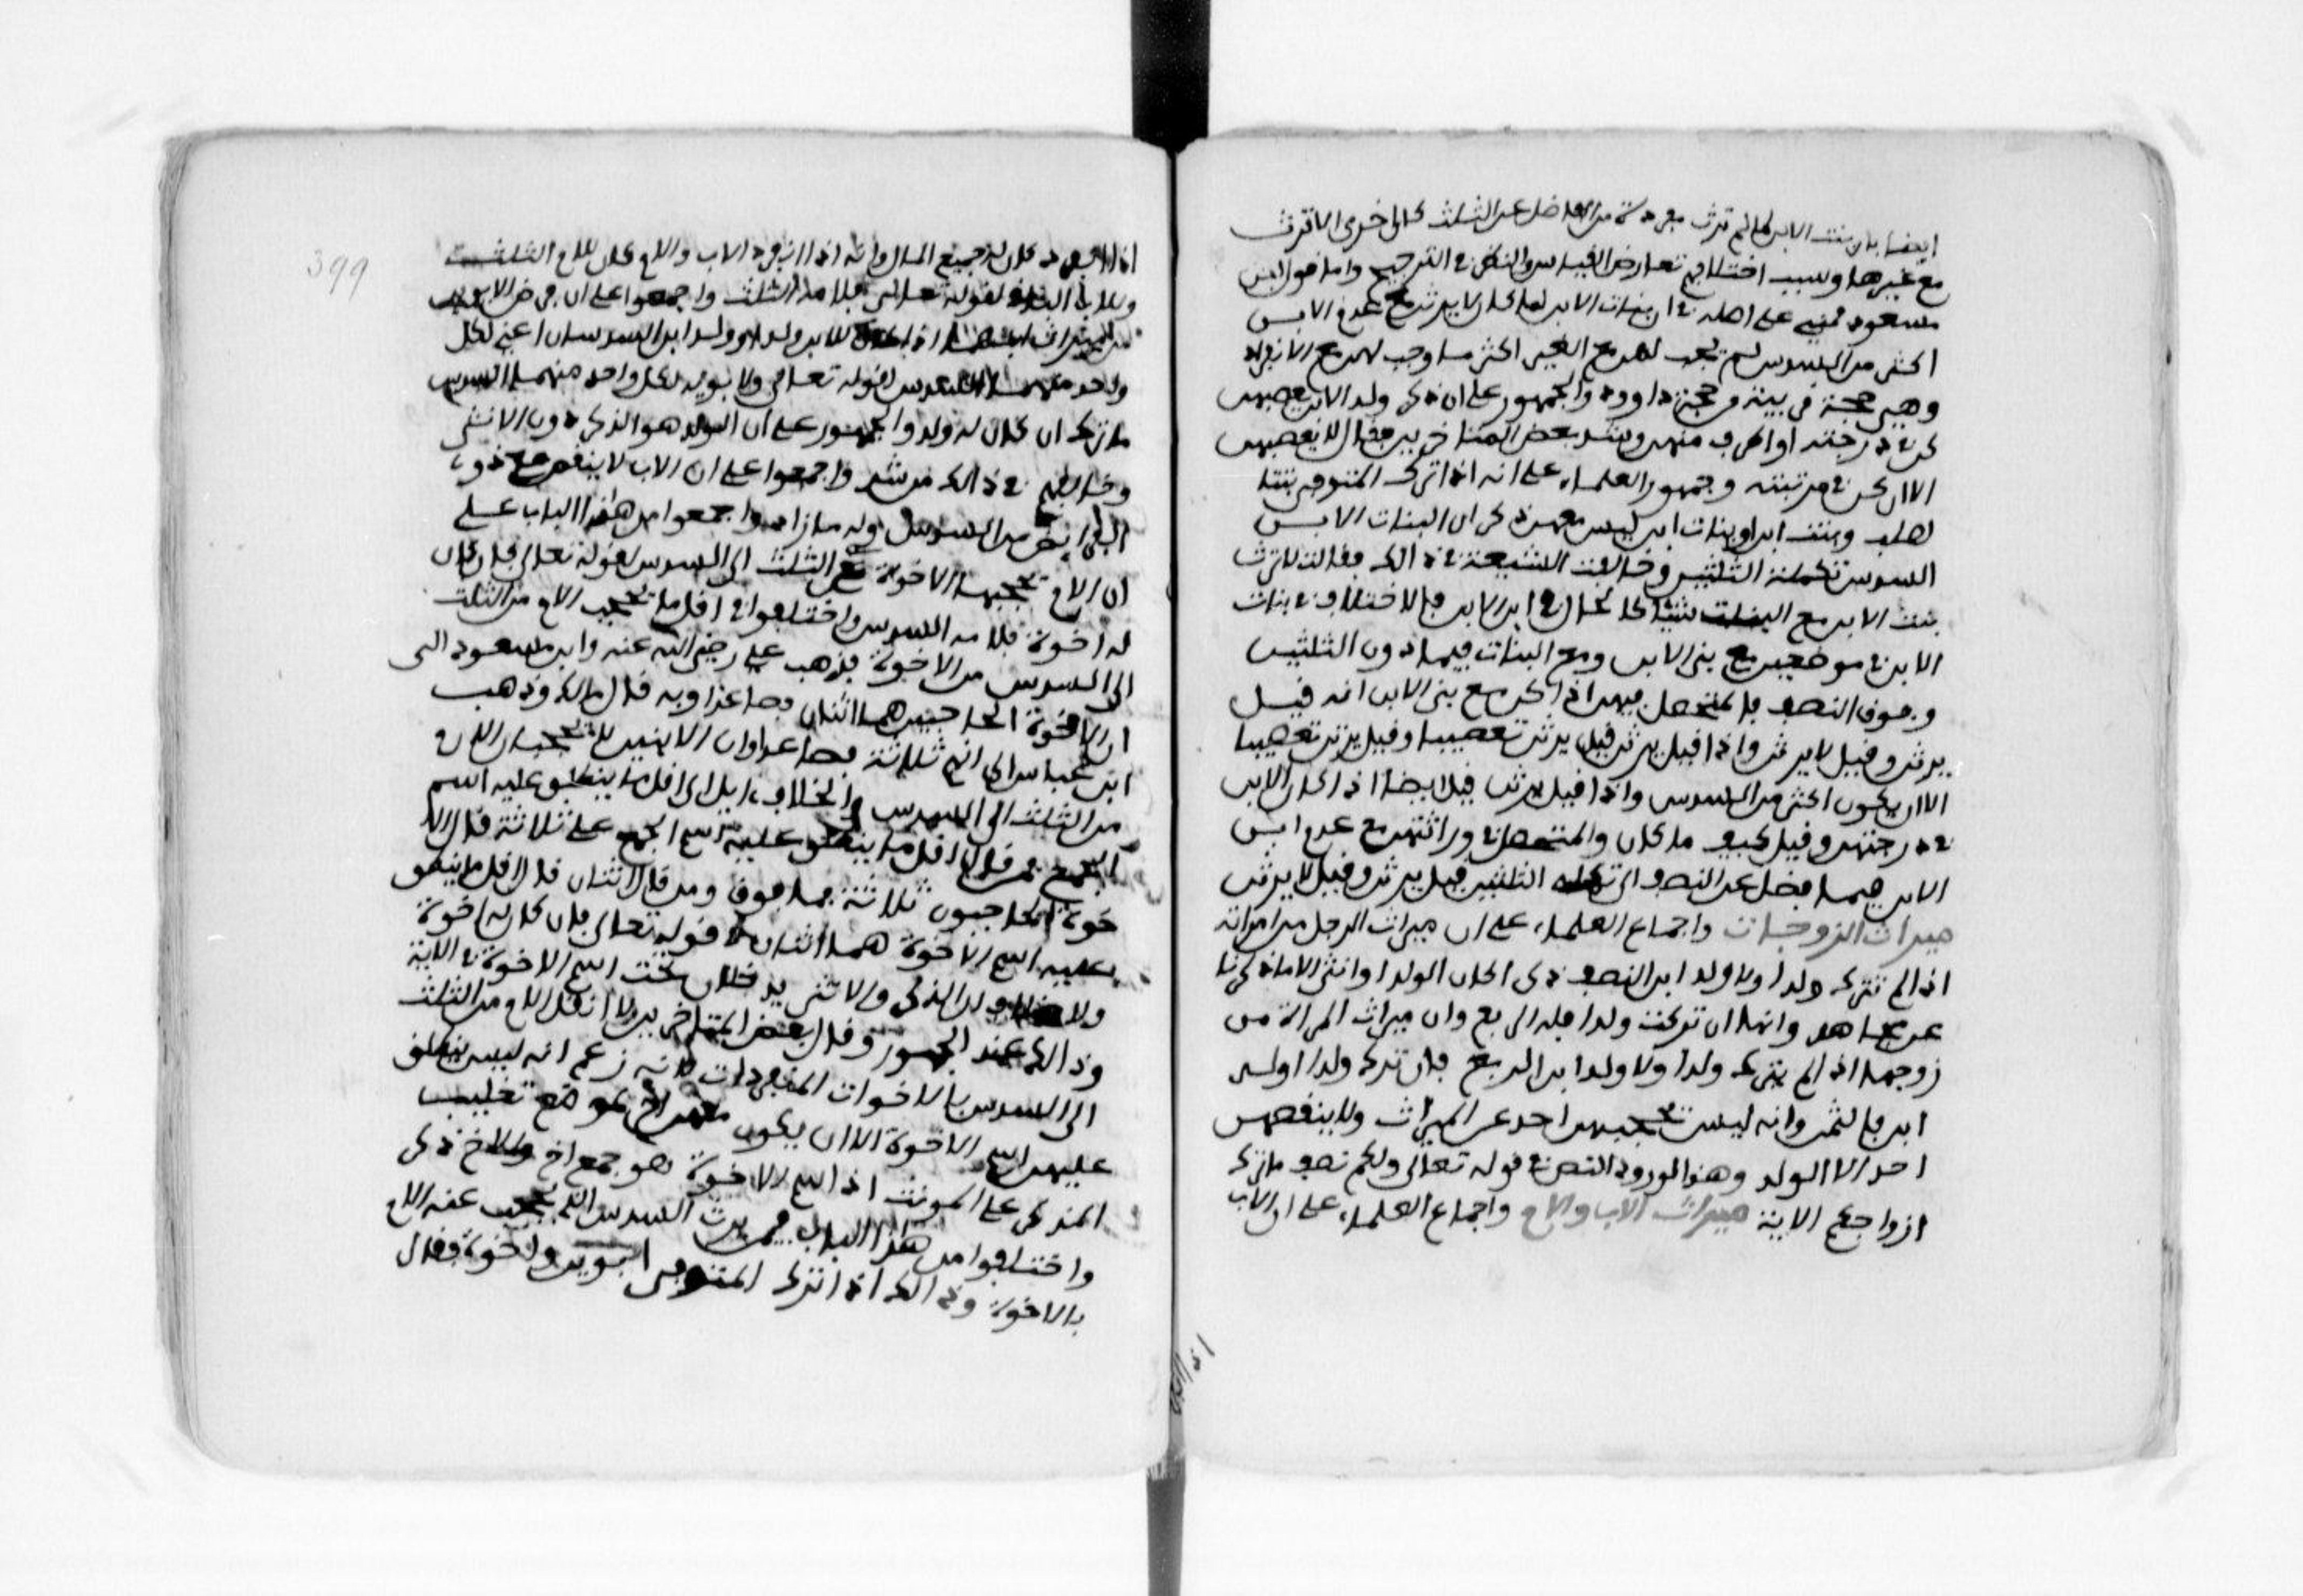 ايضا بان بنت الابن لما لم ترث مفردة من الفاضل عن الثلثين كان احرى الا ترث
مع غيرها وسبب اختلافهم تعارض القياس والنظر في الترجيح واما قول ابن
مسعود فمبني على اصله في ان بنات الابن لما كن لا يرثن مع عدم الابن
اكثر من السدس لم يجب لهن مع الغير اكثر مما وجب لهن مع الانفراد
وهي حجة قريبة من حجة داوود والجمهور على ان ذكر ولد الابن يعصبهن
كن في درجته او اطرف منهن وشذ بعض المتاخرين فقال لا يعصبهن
الا ان كن في مرتبته وجمهور العلماء على انه اذا ترك المتوفى بنتا
لصلب وبنت ابن او بنات ابن ليس معهن ذكر ان البنات الابن
السدس تكملة الثلثين وخالفت الشيعة في ذالك فقالت لا ترث
بنت الابن مع البنت شيئا كالحال في ابن الابن فالاختلاف في بنات
الابن في موضعين مع بني الابن ومع البنات فيما دون الثلثين
وفوق النصف فالمتحصل فيهن اذا كن مع بني الابن انه قيل
يرثن وقيل لا يرثن واذا قيل يرثن فقيل يرثن تعصيبا وقيل يرثن تعصيبا
الا ان يكون اكثر من السدس واذا قيل يرثن فقيل ايضا اذا كان الابن
في درجتهن وقيل كيف ما كان والمتحصل في وراثتهن مع عدم ابن
الابن فيما فضل عن النصف الى تكملة الثلثين قيل يرثن وقيل لا يرثن
ميراث الزوجات واجماع العلماء على ان ميراث الرجل من امراته
اذا لم تترك ولدا ولا ولد ابن النصف ذكرا كان الولد او انثى الا ما ذكرنا
عن مجاهد وانها ان تركت ولدا فله الربع وان ميراث المراة من
زوجها اذا لم يترك ولدا ولا ولد ابن الربع فان ترك ولدا او ولد
ابن فالثمن وانه ليس يحجبهن احد عن الميراث ولا ينقصهن
احد الا الولد وهذا لورود النص في قوله تعالى ولكم نصف ما ترك
ازواجكم الاية ميراث الاب والام واجماع العلماء على ان الاب
399
اذا انفرد كان له جميع المال وانه اذا انفرد الاب والام كان للام الثلث
وللاب الباقي لقوله تعالى فلامه الثلث واجمعوا على ان فرض الابوين
من الميراث اذا كان للابن ولد او ولد ابن السدسان اعني لكل
واحد منهما السدس لقوله تعالى ولابويه لكل واحد منهما السدس
ما ترك ان كان له ولد والجمهور على ان الولد هو الذكر دون الانثى
وخالفهم في ذالك من شذ واجمعوا على ان الاب لا ينقص مع ذوي
الفرائض من السدس وله ما زاد واجمعوا من هذا الباب على
ان الام يحجبها الاخوة من الثلث الى السدس لقوله تعالى فان كان
له اخوة فلامه السدس واختلفوا في اقل ما يحجب الام من الثلث
الى السدس من الاخوة فذهب علي رضي الله عنه وابن مسعود الى
ان الاخوة الحاجبين هما اثنان فصاعدا وبه قال مالك وذهب
ابن عباس الى انهم ثلاثة فصاعدا وان الاثنين لا يحجبان الام
من الثلث الى السدس والخلاف ءايل الى اقل ما ينطلق عليه اسم
الجمع فمن قال اقل ما ينطلق عليه اسم الجمع على ثلاثة قال الا
خوة الحاجبون ثلاثة فما فوق ومن قال الاثنان قال اقل ما ينطلق
عليه اسم الاخوة هما اثنان في قوله تعالى فان كان له اخوة
ولا خلاف ان الذكر والانثى يدخلان تحت اسم الاخوة في الاية
وذالك عند الجمهور وقال بعض المتاخرين لا انقل الام من الثلث
الى السدس بالاخوات المنفردات لانه زعم انه ليس ينطلق
عليهن اسم الاخوة الا ان يكون معهن اخ لموضع تغليب
المذكر على المونث اذ اسم الاخوة هو جمع اخ والاخ ذكر
واختلفوا من هذا الباب فيمن يرث السدس الذي يحجب عنه الام
بالاخوة وذالك اذا ترك المتوفى ابوين واخوة فقال